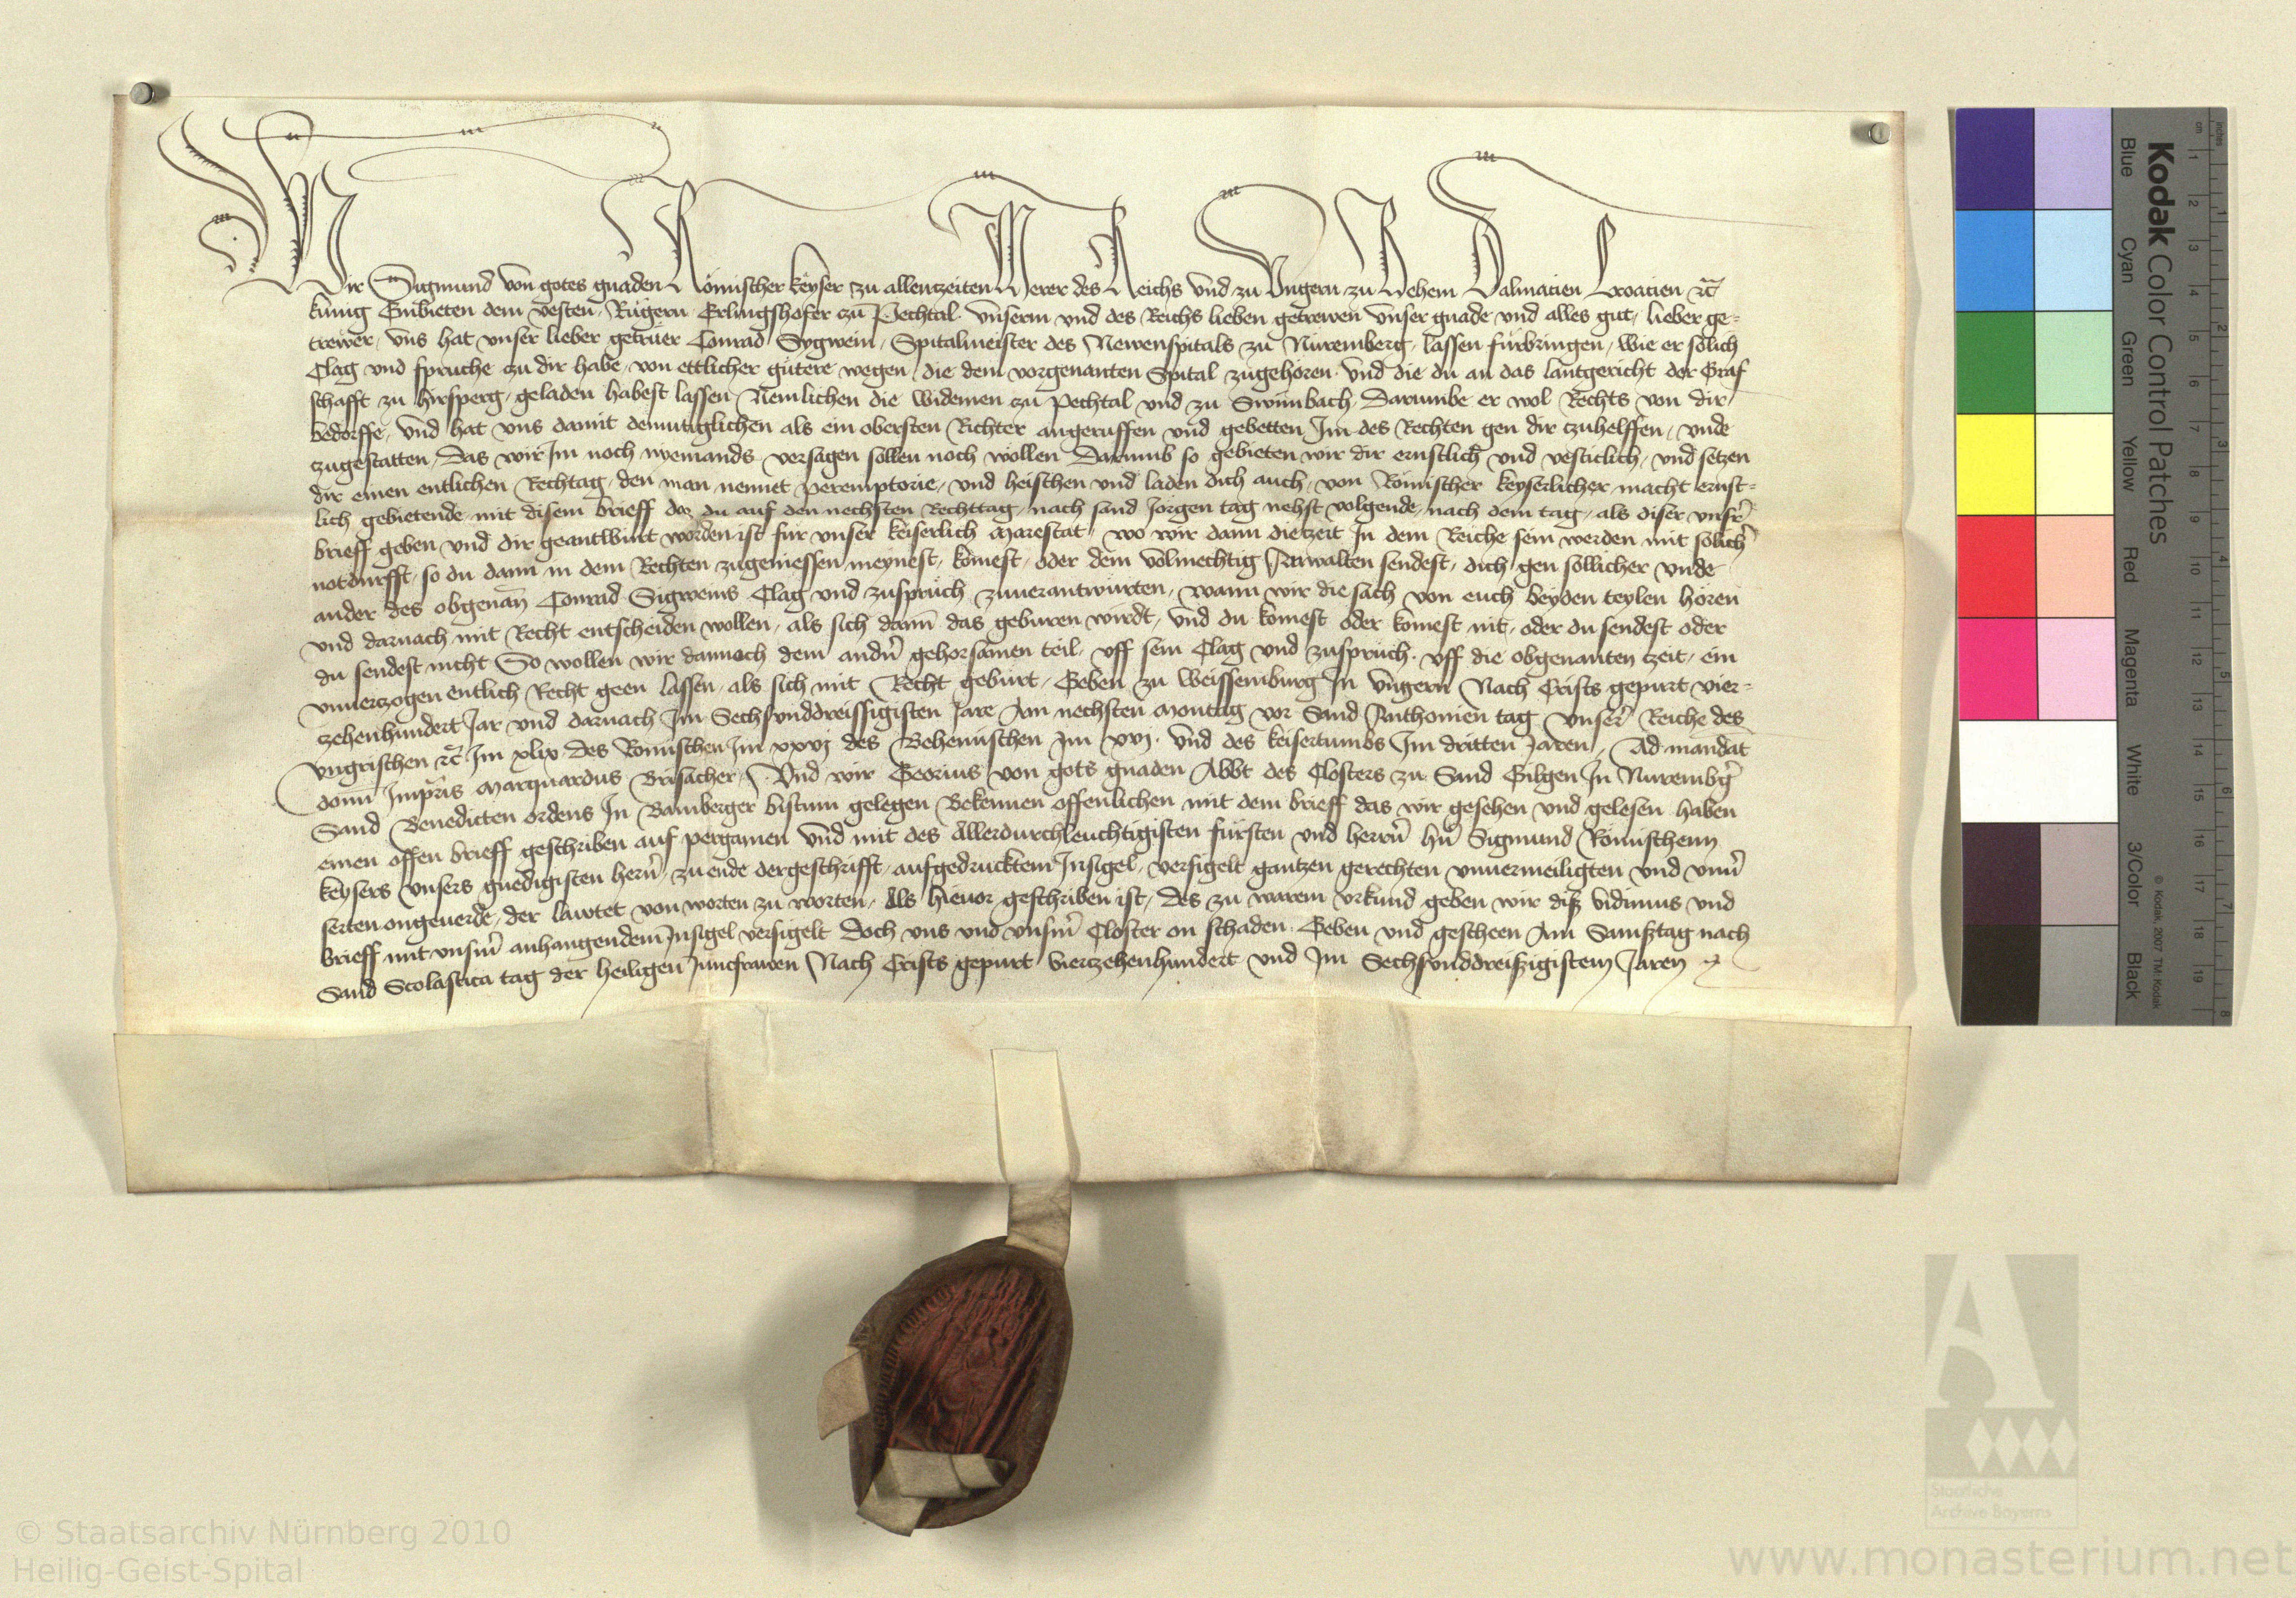 Wir Sigmund von gotes gnaden Römischer keyser zu allenczeiten Merer des Reichs vnd zu Vngern zu Behem Dalmacien Croacien ꝛc̃
kunig Embieten dem vesten Rügern Erlingshofer czu Pechtal vnserm vnd des Reichs lieben getrewen vnser gnade vnd alles gut, lieber ge-
trewer, vns hat vnser lieber getrüer Conrad Sygwein, Spitalmeister des Newenspitals zu Nüremberg, lassen fürbringen, wie er sölich
Clag vnd spruche czu dir habe, von ettlicher gütere wegen, die dem vorgenanten Spital zugehoren vnd die du an das lantgericht der Graf
schafft zu hirsperg, geladen habest lassen Nemlichen die widemen czu Pechtal vnd zu Swimbach, Darumbe er wol Rechts von dir
bedörffe, vnd hat vns damit demutiglichen als ein obersten Richter angeruffen vnd gebetten Jm des Rechten gen dir czuhelffen, vnde
czugestatten, Das wir Jm noch nyemands versagen sollen noch wollen Darumb so gebieten wir dir ernstlich vnd vesticlich, vnd setzen
dir einen entlichen Rechtag, den man nennet peremptorie, vnd heischen vnd laden dich auch, von Römischer keyserlicher macht ernst-
lich gebietende mit disem brieff daz du auf den nechsten Rechttag nach sand Jörgen tag nehst volgende, nach dem tag, als diser vnsr̃
brieff geben vnd dir geantwurt worden ist für vnser keiserlich Maiestat, wo wir dann die zeit Jn dem Reiche sein werden mit sölich̃
notdurfft, so du dann in dem Rechten zugeniessen meynest, komest, oder dem volmechtig Anwalten sendest, dich gen söllicher vnde
ander des obgenañ Conrad Sigweins Clag vnd zuspruch zuuerantwürten, wann wir die sach von euch beyden teylen hören
vnd darnach mit Recht entscheiden wollen, als sich dann das geburen wirdt, vnd du komest oder komest nit, oder du sendest oder
du sendest nicht So wollen wir dannoch dem andr̃ gehorsamen teil, vff sein Clag vnd zuspruch vff die obgenanten zeit, ein
vnuerczogen entlich Recht geen lassen, als sich mit Recht gebürt, Geben zu Weissemburg Jn vngern Nach Crists gepurt vier-
zehenhundert Jar vnd darnach Jm Sechsvnddreissigisten Jare Am nechsten Montag vor Sand Anthonien tag vnser̃ Reiche des
vngrischen ꝛc̃ Jm xlix des Römischen Jm xxvj des Behemischen Jm xvj vnd des keisertumbs Jm dritten Jaren, Ad mandat
domĩ Jmpr̃is Marquardus Brisacher, Vnd wir Georius von gots gnaden Abbt des Closters zu Sand Gilgen Jn Nurembg̃
Sand Benedicten ordens Jn Bamberger bistum gelegen Bekennen offenlichen mit dem brieff das wir gesehen vnd gelesen haben
einen offen brieff geschriben auf pergamen vnd mit des Allerdurchleuchtigisten fürsten vnd herrñ hñ Sigmund Römischenn
keysers vnsers gnedigisten herñ, zu ende der geschrifft, aufgedrucktem Jnsigel, versigelt gantzen gerechten vnuermeiligten vnd vnũ
serten ongeuerde, der lawtet von worten zu worten, Als hieuor geschriben ist, Des zu warem vrkund geben wir diß vidimus vnd
brieff mit vnsm̃ anhangendem Jnsigel versigelt Doch vns vnd vnsm̃ Closter on schaden Geben vnd gescheen Am Samßtag nach
Sand Scolastica tag der heiligen Junckfrawen Nach Crists gepurt vierczehenhundert vnd Jm Sechsvnddreißigistem Jaren
Kodak Color Control Patches
Blue Cyan Green Yellow Red Magenta White 3/Color Black
© Kodak, 2007 TM: Kodak
cm 1 2 3 4 5 6 7 8 9 10 11 12 13 14 15 16 17 18 19
inches 1 2 3 4 5 6 7 8
Staatliche
Archive Bayerns
© Staatsarchiv Nürnberg 2010
Heilig-Geist-Spital
www.monasterium.net